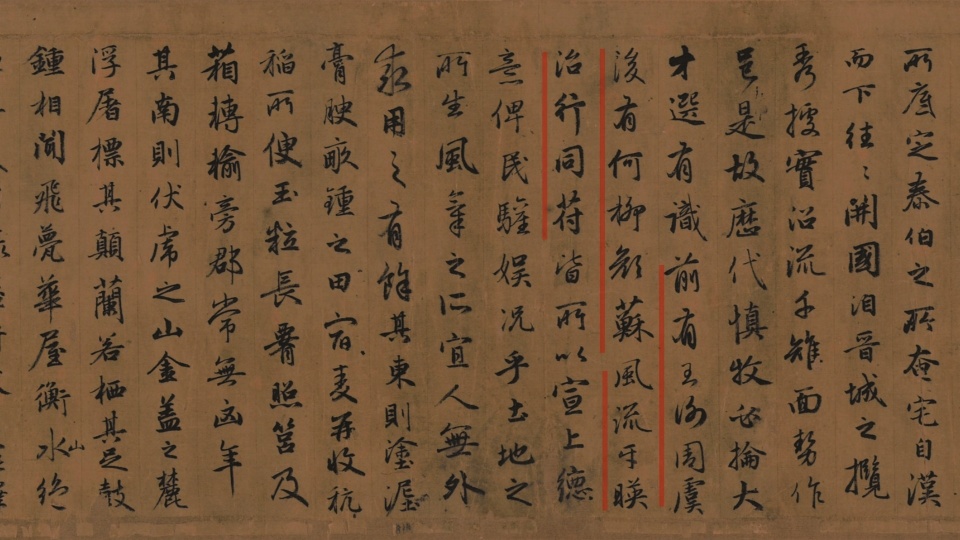 所底定泰伯之所奄宅自漢
而下往往開國洎晉城之攬
秀據實沿流千雉面勢作
邑是故歷代慎牧必掄大
才選有識前有王謝周虞
後有何柳顏蘇風流互暎
治行同苻皆所以宣上德
意俾民驩娛況乎土地之
所生風氣之所宜人無外
求用之有餘其東則塗泥
膏腴畝鍾之田宿麥再收秔
稻所便玉粒長腰照筥及
箱轉輸旁郡常無凶年
其南則伏虎之山金蓋之麓
浮屠標其顛蘭若栖其足鼓
鍾相聞飛甍華屋衡山水絶